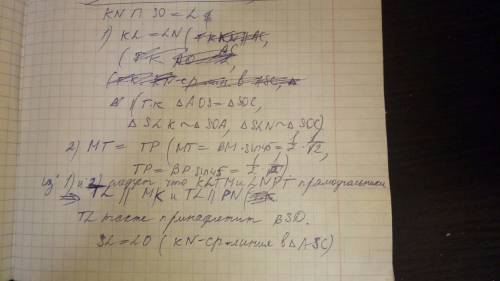 KN ∩ SO = L
1) KL = LN (
( т.к.
Δ т.к ΔAOS = ΔSOC,
ΔSLK ~ ΔSOA, ΔSLN ~ ΔSOC)
2) MT = TP (MT = BM · sin 45 = 1/2 · √2,
TP = BP sin 45 = 1/2 √2)
1) и 2) следует что KLTM и LNPT прямоугольники
=> TL || MK и TL || PN
TL тоже принадлежит BSD.
SL = LO (KN - ср линия в ΔASC)